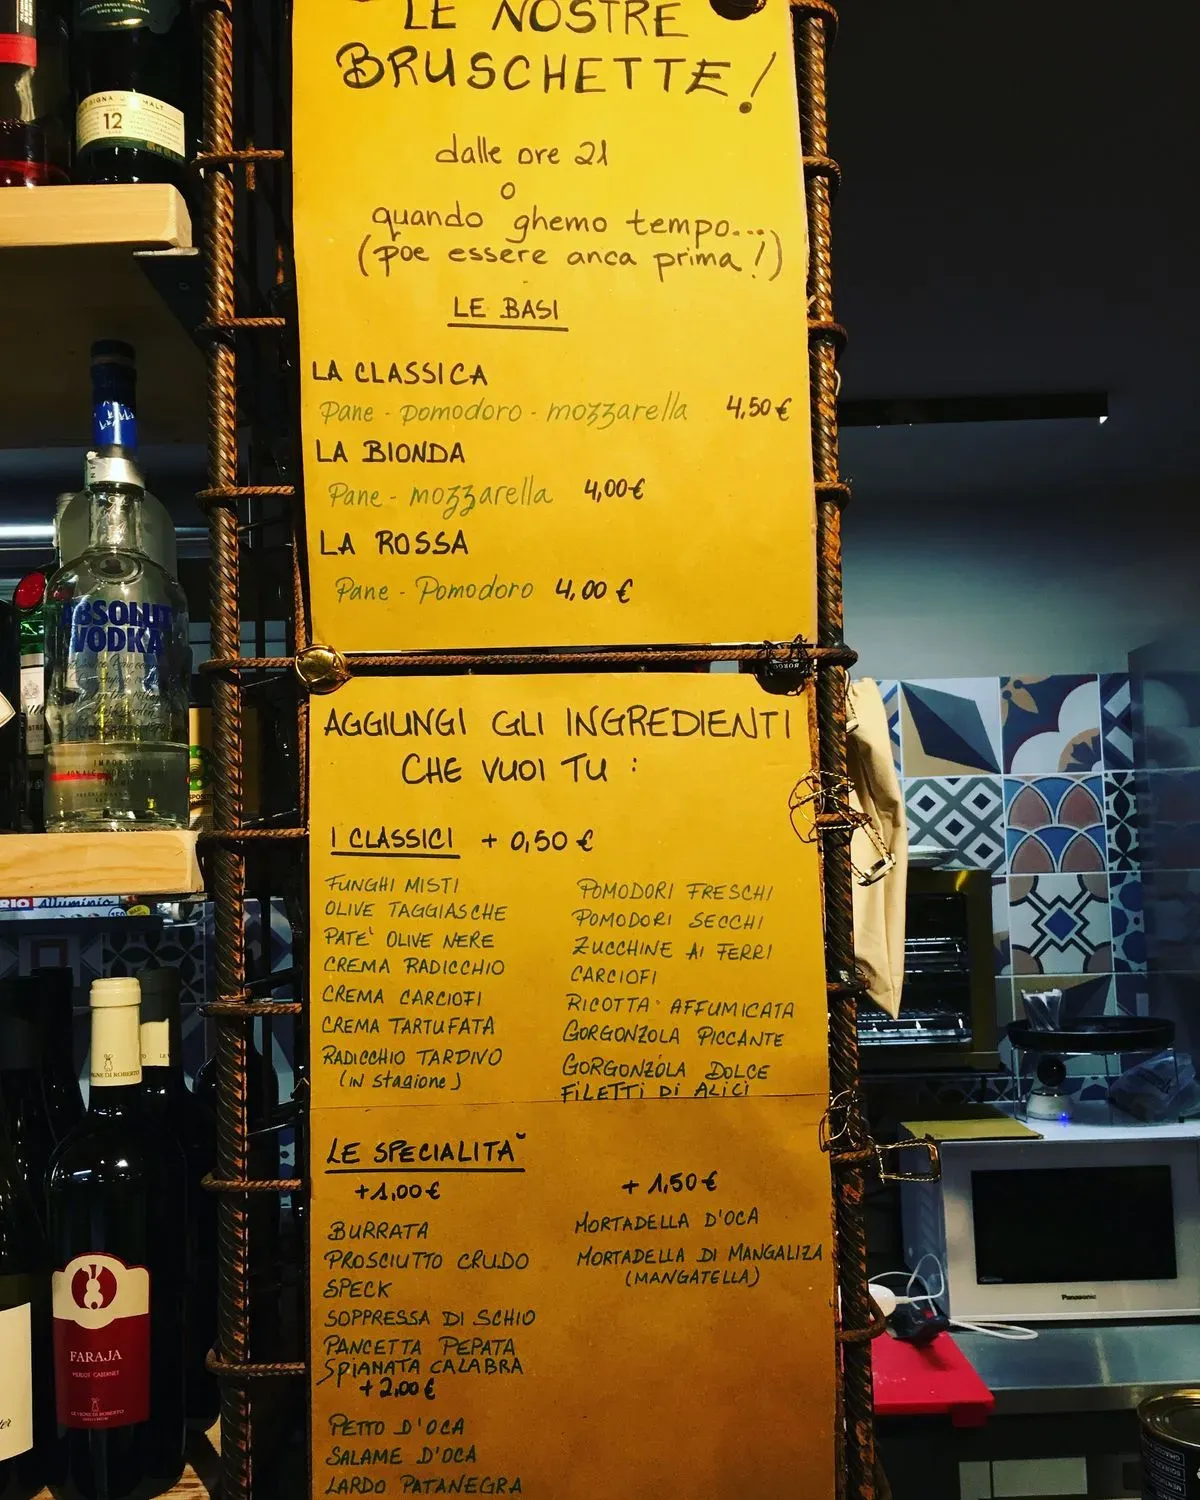 LE NOSTRE
BRUSCHETTE!
dalle ore 21
o
quando ghemo tempo...
(poe essere anca prima!)
LE BASI
LA CLASSICA
Pane - pomodoro - mozzarella 4,50 €
LA BIONDA
Pane - mozzarella 4,00 €
LA ROSSA
Pane - Pomodoro 4,00 €
AGGIUNGI GLI INGREDIENTI
CHE VUOI TU :
I CLASSICI + 0,50 €
FUNGHI MISTI
OLIVE TAGGIASCHE
PATE' OLIVE NERE
CREMA RADICCHIO
CREMA CARCIOFI
CREMA TARTUFATA
RADICCHIO TARDIVO
(IN stagione)
POMODORI FRESCHI
POMODORI SECCHI
ZUCCHINE AI FERRI
CARCIOFI
RICOTTA AFFUMICATA
GORGONZOLA PICCANTE
GORGONZOLA DOLCE
FILETTI DI ALICI
LE SPECIALITA'
+1,00 €
BURRATA
PROSCIUTTO CRUDO
SPECK
SOPPRESSA DI SCHIO
PANCETTA PEPATA
SPIANATA CALABRA
+ 2,00 €
PETTO D'OCA
SALAME D'OCA
LARDO PATANEGRA
+ 1,50 €
MORTADELLA D'OCA
MORTADELLA DI MANGALIZA
(MANGATELLA)
12
MALT
ABSOLUT
VODKA
IMPORTED
Alluminio
VIGNE DI ROBERTO
FARAJA
MERLOT CABERNET
LE VIGNE DI ROBERTO
Panasonic